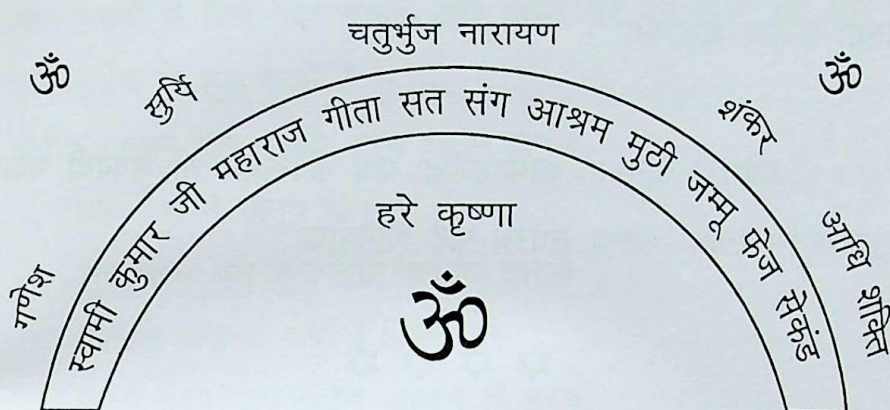 चतुर्भुज नारायण
ॐ
ॐ
सुर्यि
शंकर
गणेश
आधि शक्ति
स्वामी कुमार जी महाराज गीता सत संग आश्रम मुठी जम्मू फेज सेकंड
हरे कृष्णा
ॐ